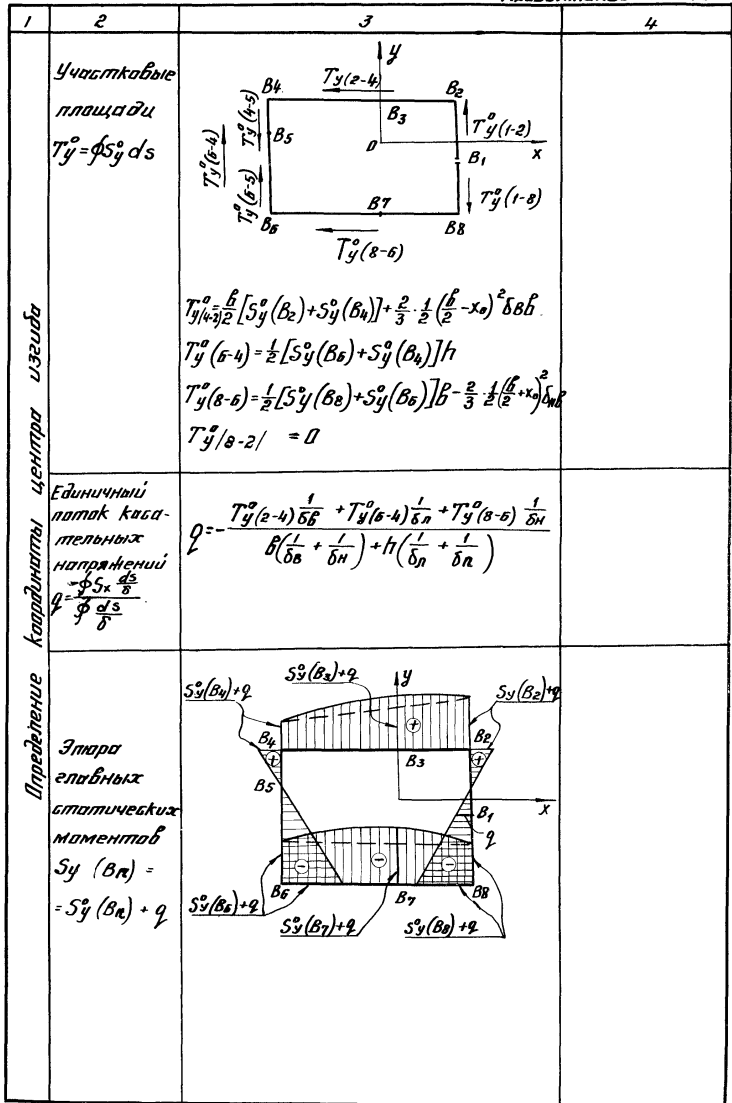 1 2 3 4
Определение координаты центра изгиба
Участковые
площади
T°y=∮S°y ds
y
Ty(2-4)
B4
B2
B3
T°y(4-5)
T°y(1-2)
B5
0
x
B1
T°y(6-4)
T°y(6-5)
T°y(1-8)
B6
B7
B8
T°y(8-6)
T°y(4-2)=в/2[S°y(B2)+S°y(B4)]+2/3·1/2(в/2-x0)²δвв
T°y(6-4)=1/2[S°y(B6)+S°y(B4)]h
T°y(8-6)=1/2[S°y(B8)+S°y(B6)]в-2/3·1/2(в/2+x0)²δнв
T°y/8-2/ =0
Единичный
поток каса-
тельных
напряжений
q=-∮Sx ds/δ / ∮ ds/δ
q=-(T°y(2-4) 1/δв + T°y(6-4) 1/δл + T°y(8-6) 1/δн) / (в(1/δв + 1/δн)+h(1/δл + 1/δп))
Эпюра
главных
статических
моментов
Sy (Bn) =
=S°y (Bn) + q
y
S°y(B3)+q
S°y(B4)+q
Sy(B2)+q
+
B4
B2
+
B3
+
B5
B1
x
q
-
-
-
B6
B7
B8
S°y(B6)+q
S°y(B7)+q
S°y(B8)+q